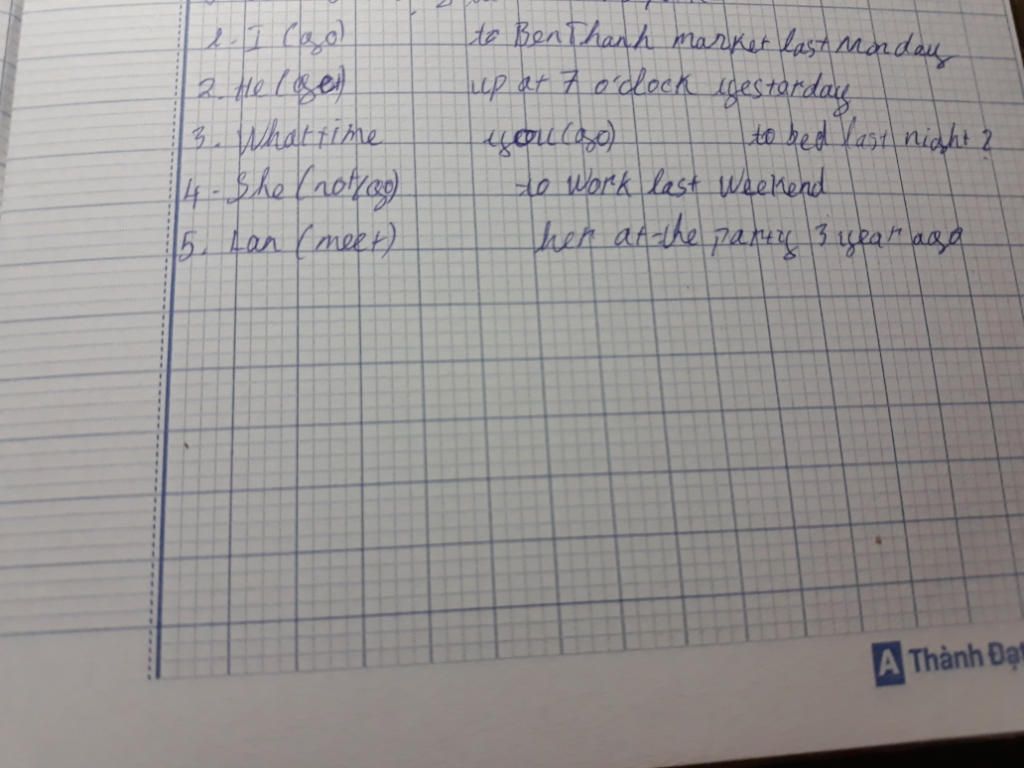 1. I (go) to Ben Thanh market last Monday
2. He (get) up at 7 o'clock yestarday
3. What time you (go) to bed last night?
4. She (not/go) to work last weekend
5. Lan (meet) her at the party 3 year ago
A Thành Đạt